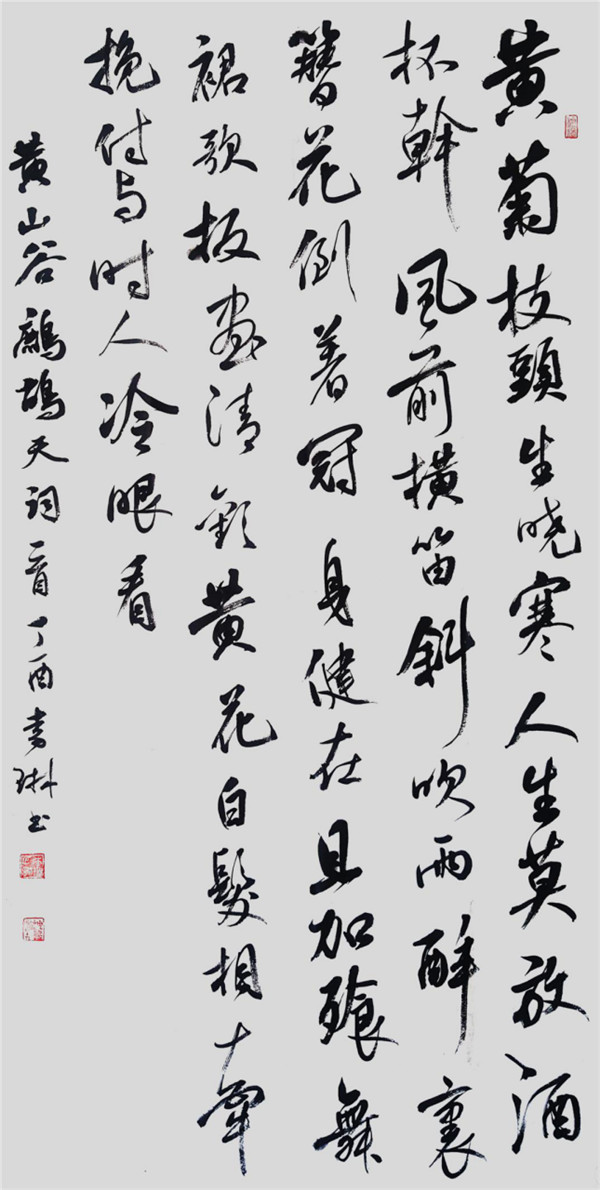 黄菊枝頭生晓寒人生莫放酒
杯幹風前横笛斜吹雨醉裏
簪花倒着冠身健在且加餐舞
裙歌板盡清歡黄花白髮相牽
挽付与时人冷眼看
黄山谷鷓鴣天詞一首丁酉琳书